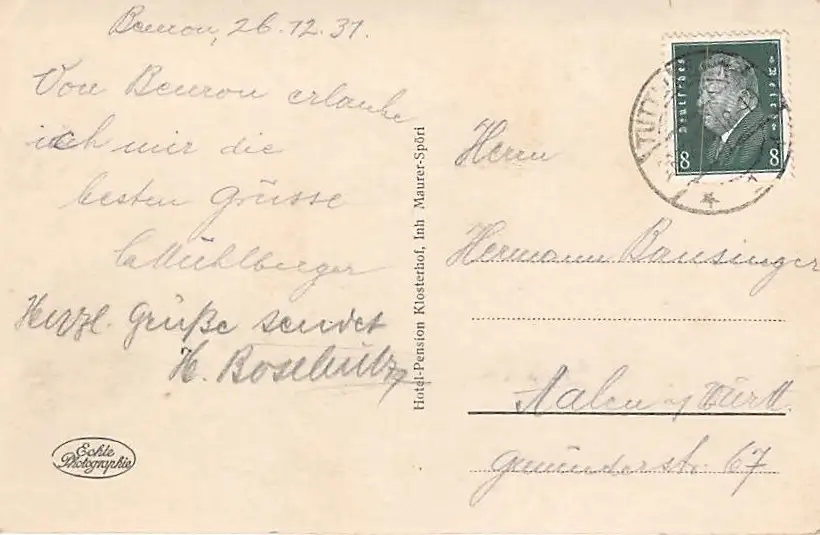 Beuron, 26.12.31.
Von Beuron erlaube
ich mir die
besten Grüsse
Mühlberger
Herzl. Grüße sendet
H.
Echte
Photographie
Hotel-Pension Klosterhof, Inh Maurer-Spöri
Deutsches Reich
8 8
TUTT
Herrn
Hermann Bansinger
Aalen / Württ.
Gmünderstr. 67